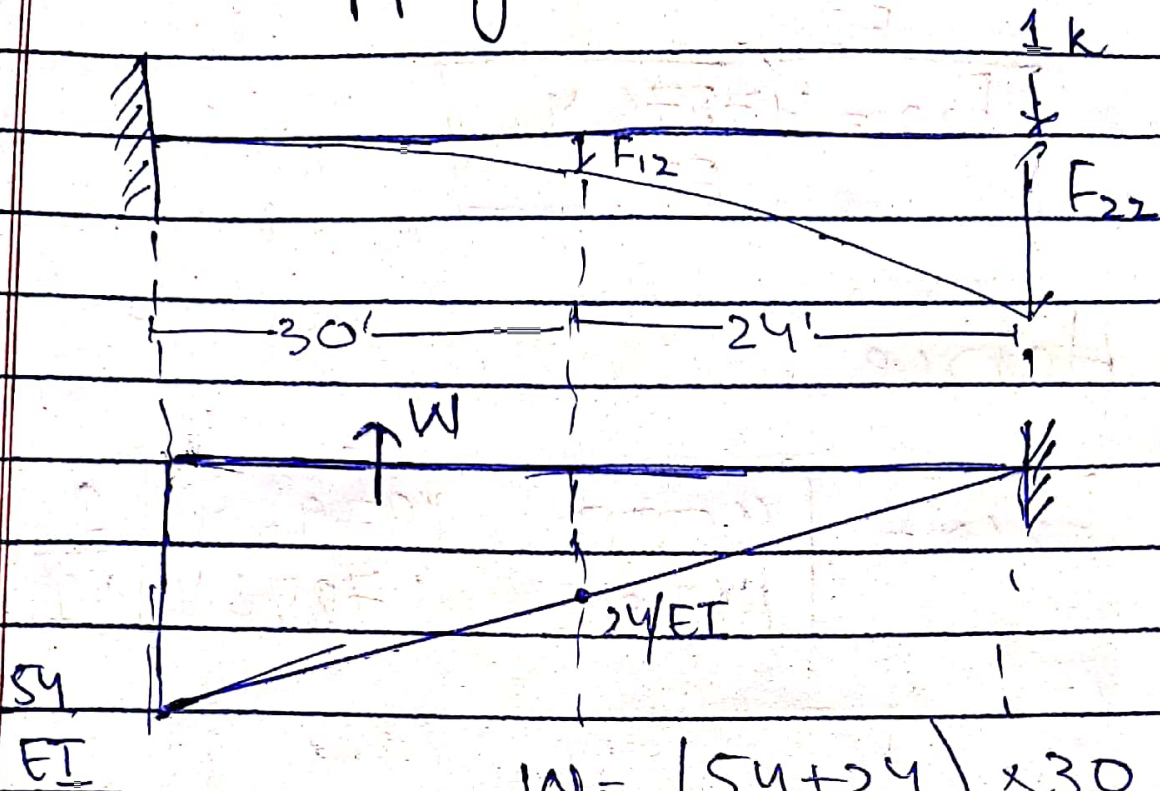 1 k
F12
F22
30'
24'
W
24/EI
54
EI
W = (54+24) × 30